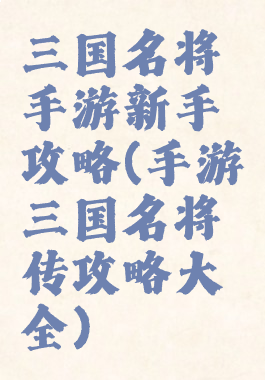 三国名将
手游新手
攻略(手游
三国名将
传攻略大
全)